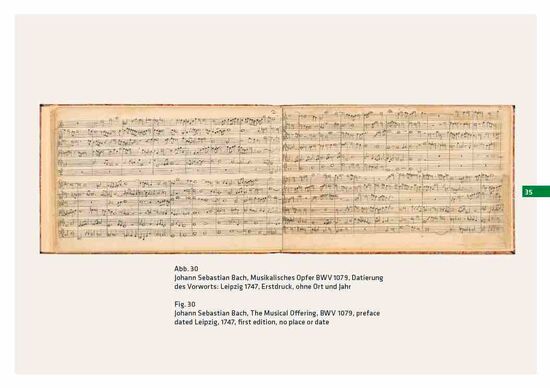 35
Abb. 30
Johann Sebastian Bach, Musikalisches Opfer BWV 1079, Datierung
des Vorworts: Leipzig 1747, Erstdruck, ohne Ort und Jahr
Fig. 30
Johann Sebastian Bach, The Musical Offering, BWV 1079, preface
dated Leipzig, 1747, first edition, no place or date